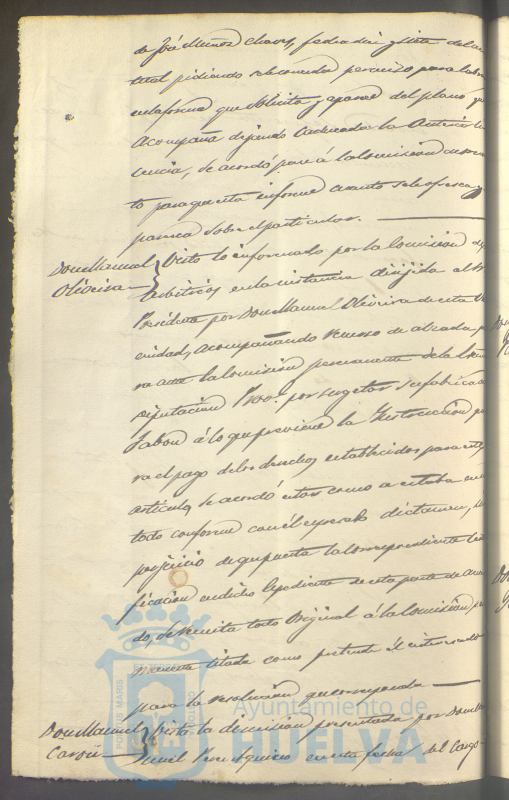 de José Muñoz Chaves, fecha diez y siete del ac
tual pidiendo se le conceda permiso para labrar
en la forma que solicita y aparece del plano que
acompaña dejando caducada la anterior li
cencia, se acordó pase á la Comision de orna
to para que esta informe cuanto se le ofrezca y
parezca sobre el particular.
Don Manuel
Oliveira
Visto lo informado por la Comision de
Arbitrios en la instancia dirijida al Sr
Presidente por Don Manuel Oliveira de esta Ve
cindad, acompañando recurso de alzada pa
ra ante la Comision permanente de la Exma
Diputacion Prov. por sugetar su fabrica de
Jabon á lo que previene la Instruccion pa
ra el pago de los derechos establecidos para este
articulo, se acordó estar como a estaba en un
todo conforme con él espresado dictamen, sin
perjuicio de que puesta la correspondiente certi
ficacion en dicho Espediente de esta parte de acuer
do, se remita todo original á la Comision per
manente citada como pretende él interesado
para la resolucion que corresponda
Don Manuel
Visto la dimision presentada por Don Ma
nuel Perez en esta fecha del Cargo
PORTUS MARIS
Ayuntamiento de
HUELVA